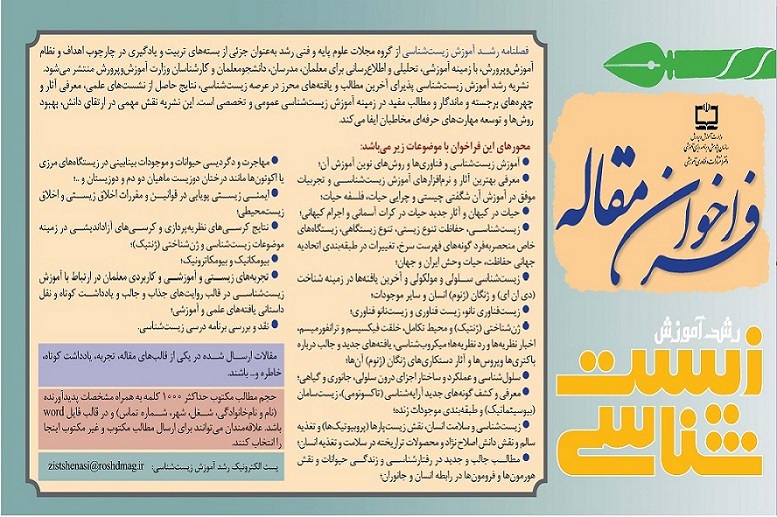 وزارت آموزش و پرورش
سازمان پژوهش و برنامه‌ریزی آموزشی
دفتر انتشارات و فناوری آموزشی
فراخوان مقاله
رشد آموزش
زیست
شناسی
فصلنامه رشد آموزش زیست‌شناسی از گروه مجلات علوم پایه و فنی رشد به‌عنوان جزئی از بسته‌های تربیت و یادگیری در چارچوب اهداف و نظام
آموزش‌وپرورش، با زمینه آموزشی، تحلیلی و اطلاع‌رسانی برای معلمان، مدرسان، دانشجومعلمان و کارشناسان وزارت آموزش‌وپرورش منتشر می‌شود.
نشریه رشد آموزش زیست‌شناسی پذیرای آخرین مطالب و یافته‌های محرز در عرصه زیست‌شناسی، نتایج حاصل از نشست‌های علمی، معرفی آثار و
چهره‌های برجسته و ماندگار و مطالب مفید در زمینه آموزش زیست‌شناسی عمومی و تخصصی است. این نشریه نقش مهمی در ارتقای دانش، بهبود
روش‌ها و توسعه مهارت‌های حرفه‌ای مخاطبان ایفا می‌کند.
محورهای این فراخوان با موضوعات زیر می‌باشد:
● آموزش زیست‌شناسی و فناوری‌ها و روش‌های نوین آموزش آن؛
● معرفی بهترین آثار و نرم‌افزارهای آموزش زیست‌شناسی و تجربیات
موفق در آموزش آن شگفتی چیستی و چرایی حیات، فلسفه حیات؛
● حیات در کیهان و آثار جدید حیات در کرات آسمانی و اجرام کیهانی؛
● زیست‌شناسی، حفاظت تنوع زیستی، تنوع زیستگاهی، زیستگاه‌های
خاص منحصربه‌فرد گونه‌های فهرست سرخ، تغییرات در طبقه‌بندی اتحادیه
جهانی حفاظت، حیات وحش ایران و جهان؛
● زیست‌شناسی سلولی و مولکولی و آخرین یافته‌ها در زمینه شناخت
(دی ان ای) و ژنگان (ژنوم) انسان و سایر موجودات؛
● زیست‌فناوری نانو، زیست فناوری و زیست‌نانو فناوری؛
● ژن‌شناختی (ژنتیک) و محیط تکامل، خلقت فیکسیسم و ترانفورمیسم،
اخبار نظریه‌ها و رد نظریه‌ها؛ میکروب‌شناسی، یافته‌های جدید و جالب درباره
باکتری‌ها ویروس‌ها و آثار دستکاری‌های ژنگان (ژنوم) آن‌ها؛
● سلول‌شناسی و عملکرد و ساختار اجزای درون سلولی، جانوری و گیاهی؛
● معرفی و کشف گونه‌های جدید آرایه‌شناسی (تاکسونومی)، زیست‌سامان
(بیوسیتماتیک) و طبقه‌بندی موجودات زنده؛
● زیست‌شناسی و سلامت انسان، نقش زیست‌یارها (پروبیوتیک‌ها) و تغذیه
سالم و نقش دانش اصلاح نژاد و محصولات تراریخته در سلامت و تغذیه انسان؛
● مطالب جالب و جدید در رفتارشناسی و زندگی حیوانات و نقش
هورمون‌ها و فرومون‌ها در رابطه انسان و جانوران؛
● مهاجرت و دگردیسی حیوانات و موجودات بینابینی در زیستگاه‌های مرزی
یا اکوتون‌ها مانند درختان دوزیست ماهیان دو دم و دوزیستان و..؛
● ایمنی زیستی پویایی در قوانین و مقررات اخلاق زیستی و اخلاق
زیست‌محیطی؛
● نتایج کرسی‌های نظریه‌پردازی و کرسی‌های آزاداندیشی در زمینه
موضوعات زیست‌شناسی و ژن‌شناختی (ژنتیک)؛
● بیومکانیک و بیومکاترونیک؛
● تجربه‌های زیستی و آموزشی و کاربردی معلمان در ارتباط با آموزش
زیست‌شناسی در قالب روایت‌های جذاب و جالب و یادداشت کوتاه و نقل
داستانی یافته‌های علمی و آموزشی؛
● نقد و بررسی برنامه درسی زیست‌شناسی.
مقالات ارسال شده در یکی از قالب‌های مقاله، تجربه، یادداشت کوتاه،
خاطره و... باشند.
حجم مطالب مکتوب حداکثر ۱۰۰۰ کلمه به همراه مشخصات پدیدآورنده
(نام و نام‌خانوادگی، شغل، شهر، شماره تماس) و در قالب فایل word
باشد. علاقه‌مندان می‌توانند برای ارسال مطالب مکتوب و غیر مکتوب اینجا
را انتخاب کنند.
پست الکترونیک رشد آموزش زیست‌شناسی: zistshenasi@roshdmag.ir